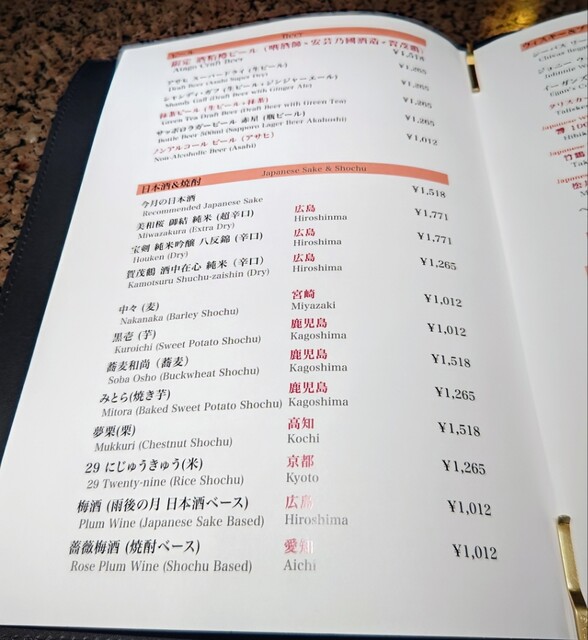 Beer
ビール
限定 酒粕樽ビール（唎酒師・安芸乃國酒造・賀茂鶴）
Atago Craft Beer
¥1,518
アサヒ スーパードライ (生ビール)
Draft Beer (Asahi Super Dry)
¥1,265
シャンディ・ガフ (生ビール+ジンジャーエール)
Shandy Gaff (Draft Beer with Ginger Ale)
¥1,265
抹茶ビール (生ビール+抹茶)
Green Tea Draft Beer (Draft Beer with Green Tea)
¥1,265
サッポロラガービール 赤星 (瓶ビール)
Bottle Beer 500ml (Sapporo Lager Beer Akahoshi)
¥1,265
ノンアルコール ビール (アサヒ)
Non-Alcoholic Beer (Asahi)
¥1,012
日本酒&焼酎 Japanese Sake & Shochu
今月の日本酒 ¥1,518
Recommended Japanese Sake
美和桜 御結 純米 (超辛口) 広島 ¥1,771
Miwazakura (Extra Dry) Hiroshinma
宝剣 純米吟醸 八反錦 (辛口) 広島 ¥1,771
Houken (Dry) Hiroshima
賀茂鶴 酒中在心 純米（辛口) 広島 ¥1,265
Kamotsuru Shuchu-zaishin (Dry) Hiroshima
中々 (麦) 宮崎 ¥1,012
Nakanaka (Barley Shochu) Miyazaki
黒壱 (芋) 鹿児島 ¥1,012
Kuroichi (Sweet Potato Shochu) Kagoshima
蕎麦和尚（蕎麦） 鹿児島 ¥1,518
Soba Osho (Buckwheat Shochu) Kagoshima
みとら(焼き芋) 鹿児島 ¥1,265
Mitora (Baked Sweet Potato Shochu) Kagoshima
夢栗(栗) 高知 ¥1,518
Mukkuri (Chestnut Shochu) Kochi
29 にじゅうきゅう(米) 京都 ¥1,265
29 Twenty-nine (Rice Shochu) Kyoto
梅酒 (雨後の月 日本酒ベース) 広島 ¥1,012
Plum Wine (Japanese Sake Based) Hiroshima
薔薇梅酒 (焼酎ベース) 愛知 ¥1,012
Rose Plum Wine (Shochu Based) Aichi